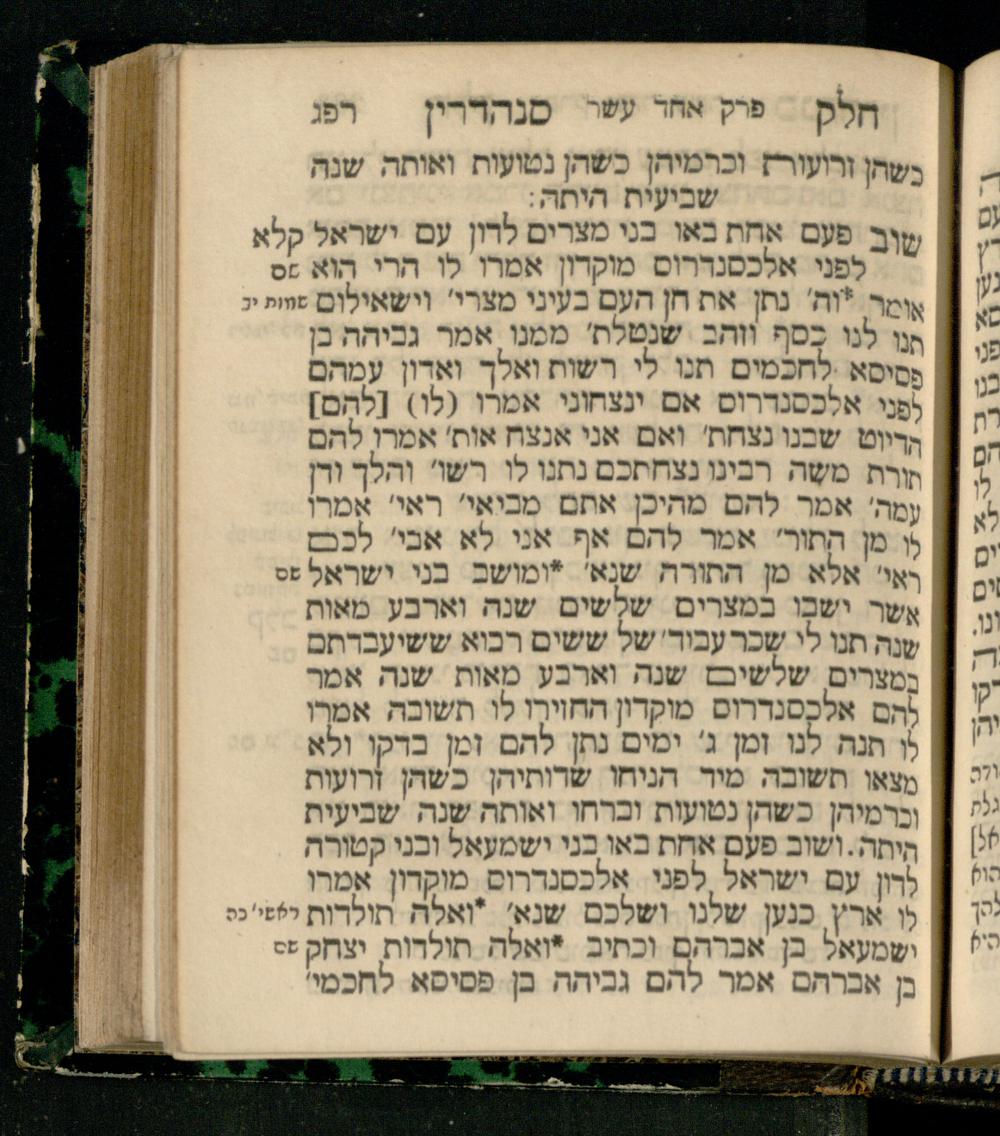 חלק פרק אחד עשר סנהדרין רפג
כשהן זרועות וכרמיהן כשהן נטועות ואותה שנה
שביעית היתה:
שוב פעם אחת באו בני מצרים לדון עם ישראל קלא
לפני אלכסנדרוס מוקדון אמרו לו הרי הוא שם
אומר *וה' נתן את חן העם בעיני מצרי' וישאילום שמות יב
תנו לנו כסף וזהב שנטלת' ממנו אמר גביהה בן
פסיסא לחכמים תנו לי רשות ואלך ואדון עמהם
לפני אלכסנדרוס אם ינצחוני אמרו (לו) [להם]
הדיוט שבנו נצחת' ואם אני אנצח אות' אמרו להם
תורת משה רבינו נצחתכם נתנו לו רשו' והלך ודן
עמה' אמר להם מהיכן אתם מביאי' ראי' אמרו
לו מן התור' אמר להם אף אני לא אבי' לכם
ראי' אלא מן התורה שנא' *ומושב בני ישראל שם
אשר ישבו במצרים שלשים שנה וארבע מאות
שנה תנו לי שכר עבוד' של ששים רבוא ששיעבדתם
במצרים שלשים שנה וארבע מאות שנה אמר
להם אלכסנדרוס מוקדון החזירו לו תשובה אמרו
לו תנה לנו זמן ג' ימים נתן להם זמן בדקו ולא
מצאו תשובה מיד הניחו שדותיהן כשהן זרועות
וכרמיהן כשהן נטועות וברחו ואותה שנה שביעית
היתה. ושוב פעם אחת באו בני ישמעאל ובני קטורה
לדון עם ישראל לפני אלכסנדרוס מוקדון אמרו
לו ארץ כנען שלנו ושלכם שנא' *ואלה תולדות ראשי' כה
ישמעאל בן אברהם וכתיב *ואלה תולדות יצחק שם
בן אברהם אמר להם גביהה בן פסיסא לחכמי'